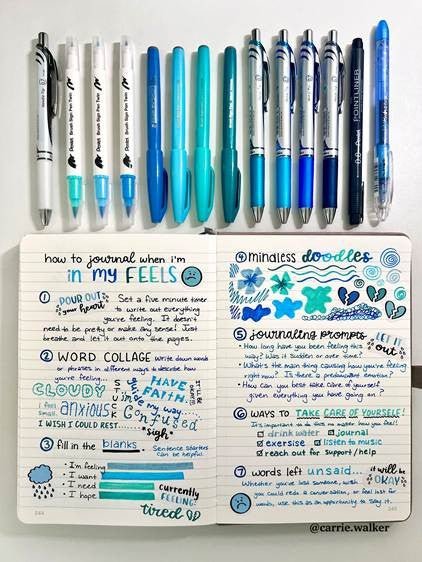 Pentel Brush Sign Pen Twin
Pentel Brush Sign Pen Twin
Pentel Brush Sign Pen Twin
POINTLINER
how to journal when i'm
in my FEELS
1 POUR OUT
your heart
Set a five minute timer
to write out everything
you're feeling. It doesn't
need to be pretty or make any sense! Just
breathe and let it out onto the pages.
2 WORD COLLAGE Write down words
or phrases in different ways to describe how
you're feeling...
CLOUDY
STUCK
HAVE
FAITH.
I feel
small.
anxious
guide my way
confused
I WISH I COULD REST
*sigh*
3 fill in the blanks
Sentence starters
can be helpful.
• I'm feeling
• I want
• I need
• I hope
currently
FEELING:
tired
4 mindless doodles
5 journaling prompts
LET IT
out
• How long have you been feeling this
way? Was it sudden or over time?
• What's the main thing causing how you're feeling
right now? Is there a predominant emotion?
• How can you best take care of yourself
given everything you have going on?
6 WAYS TO TAKE CARE OF YOURSELF!
It's important to do this no matter how you feel!
drink water journal
exersise listen to music
reach out for support/help
7 words left unsaid...
it will be
OKAY
Whether you've lost someone, wish
you could redo a conversation, or feel lost for
words, use this as an opportunity to say it.
@carrie.walker